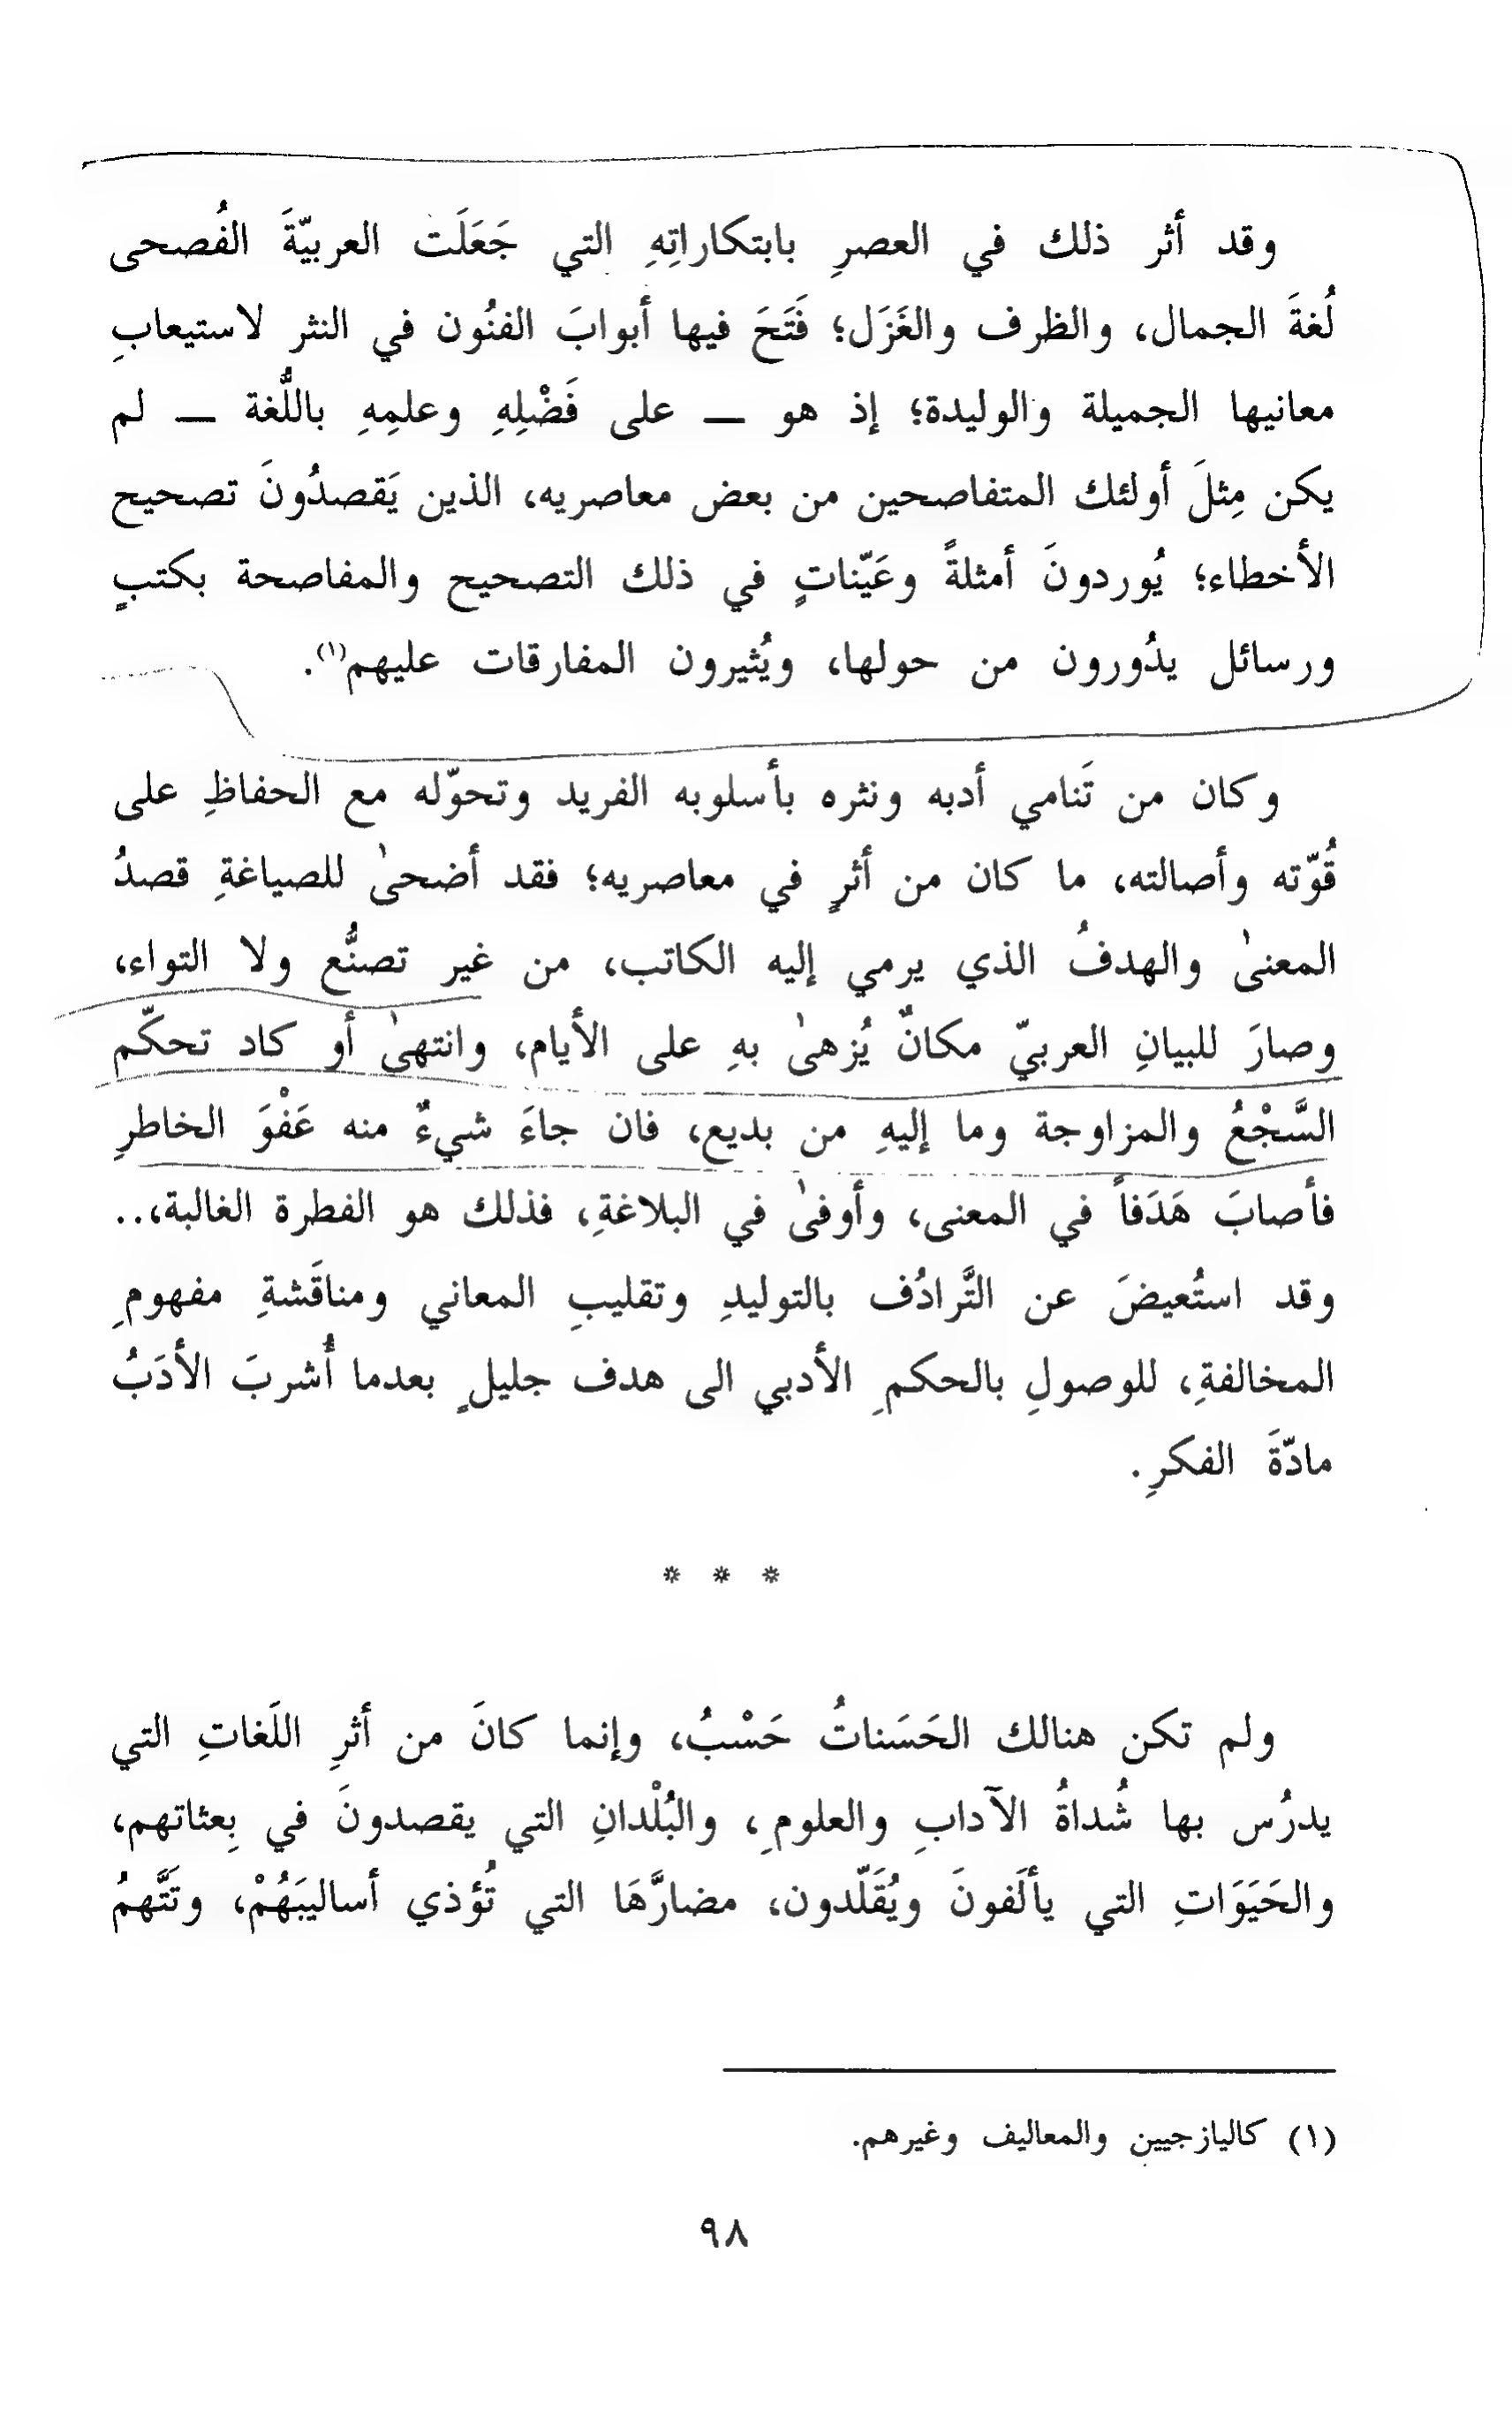 وقد أثر ذلك في العصرِ بابتكاراتِهِ التي جَعَلَت العربيّةَ الفُصحى
لُغةَ الجمال، والظرف والغَزَل؛ فَتَحَ فيها أبوابَ الفنُون في النثر لاستيعابِ
معانيها الجميلة والوليدة؛ إذ هو — على فَضْلِهِ وعلمِهِ باللُّغة — لم
يكن مِثلَ أولئك المتفاصحين من بعض معاصريه، الذين يَقصدُونَ تصحيح
الأخطاء؛ يُوردونَ أمثلةً وعَيّناتٍ في ذلك التصحيح والمفاصحة بكتبٍ
ورسائل يدُورون من حولها، ويُثيرون المفارقات عليهم(١).
وكان من تَنامي أدبه ونثره بأسلوبه الفريد وتحوّله مع الحفاظِ على
قُوّته وأصالته، ما كان من أثرٍ في معاصريه؛ فقد أضحىٰ للصياغةِ قصدُ
المعنىٰ والهدفُ الذي يرمي إليه الكاتب، من غير تصنُّع ولا التواء،
وصارَ للبيانِ العربيّ مكانٌ يُزهىٰ بهِ على الأيام، وانتهىٰ أو كاد تحكّم
السَّجْعُ والمزاوجة وما إليهِ من بديع، فان جاءَ شيءٌ منه عَفْوَ الخاطرِ
فأصابَ هَدَفاً في المعنى، وأوفىٰ في البلاغةِ، فذلك هو الفطرة الغالبة،..
وقد استُعيضَ عن التَّرادُف بالتوليدِ وتقليبِ المعاني ومناقَشةِ مفهومِ
المخالفةِ، للوصولِ بالحكمِ الأدبي الى هدف جليلٍ بعدما أُشربَ الأدَبُ
مادّةَ الفكرِ.
* * *
ولم تكن هنالك الحَسَناتُ حَسْبُ، وإنما كانَ من أثرِ اللَغاتِ التي
يدرُس بها شُداةُ الآدابِ والعلومِ، والبُلْدانِ التي يقصدونَ في بِعثاتهم،
والحَيَوَاتِ التي يألَفونَ ويُقَلّدون، مضارَّهَا التي تُؤذي أساليبَهُمْ، وتَتَّهمُ
(١) كاليازجيين والمعاليف وغيرهم.
٩٨